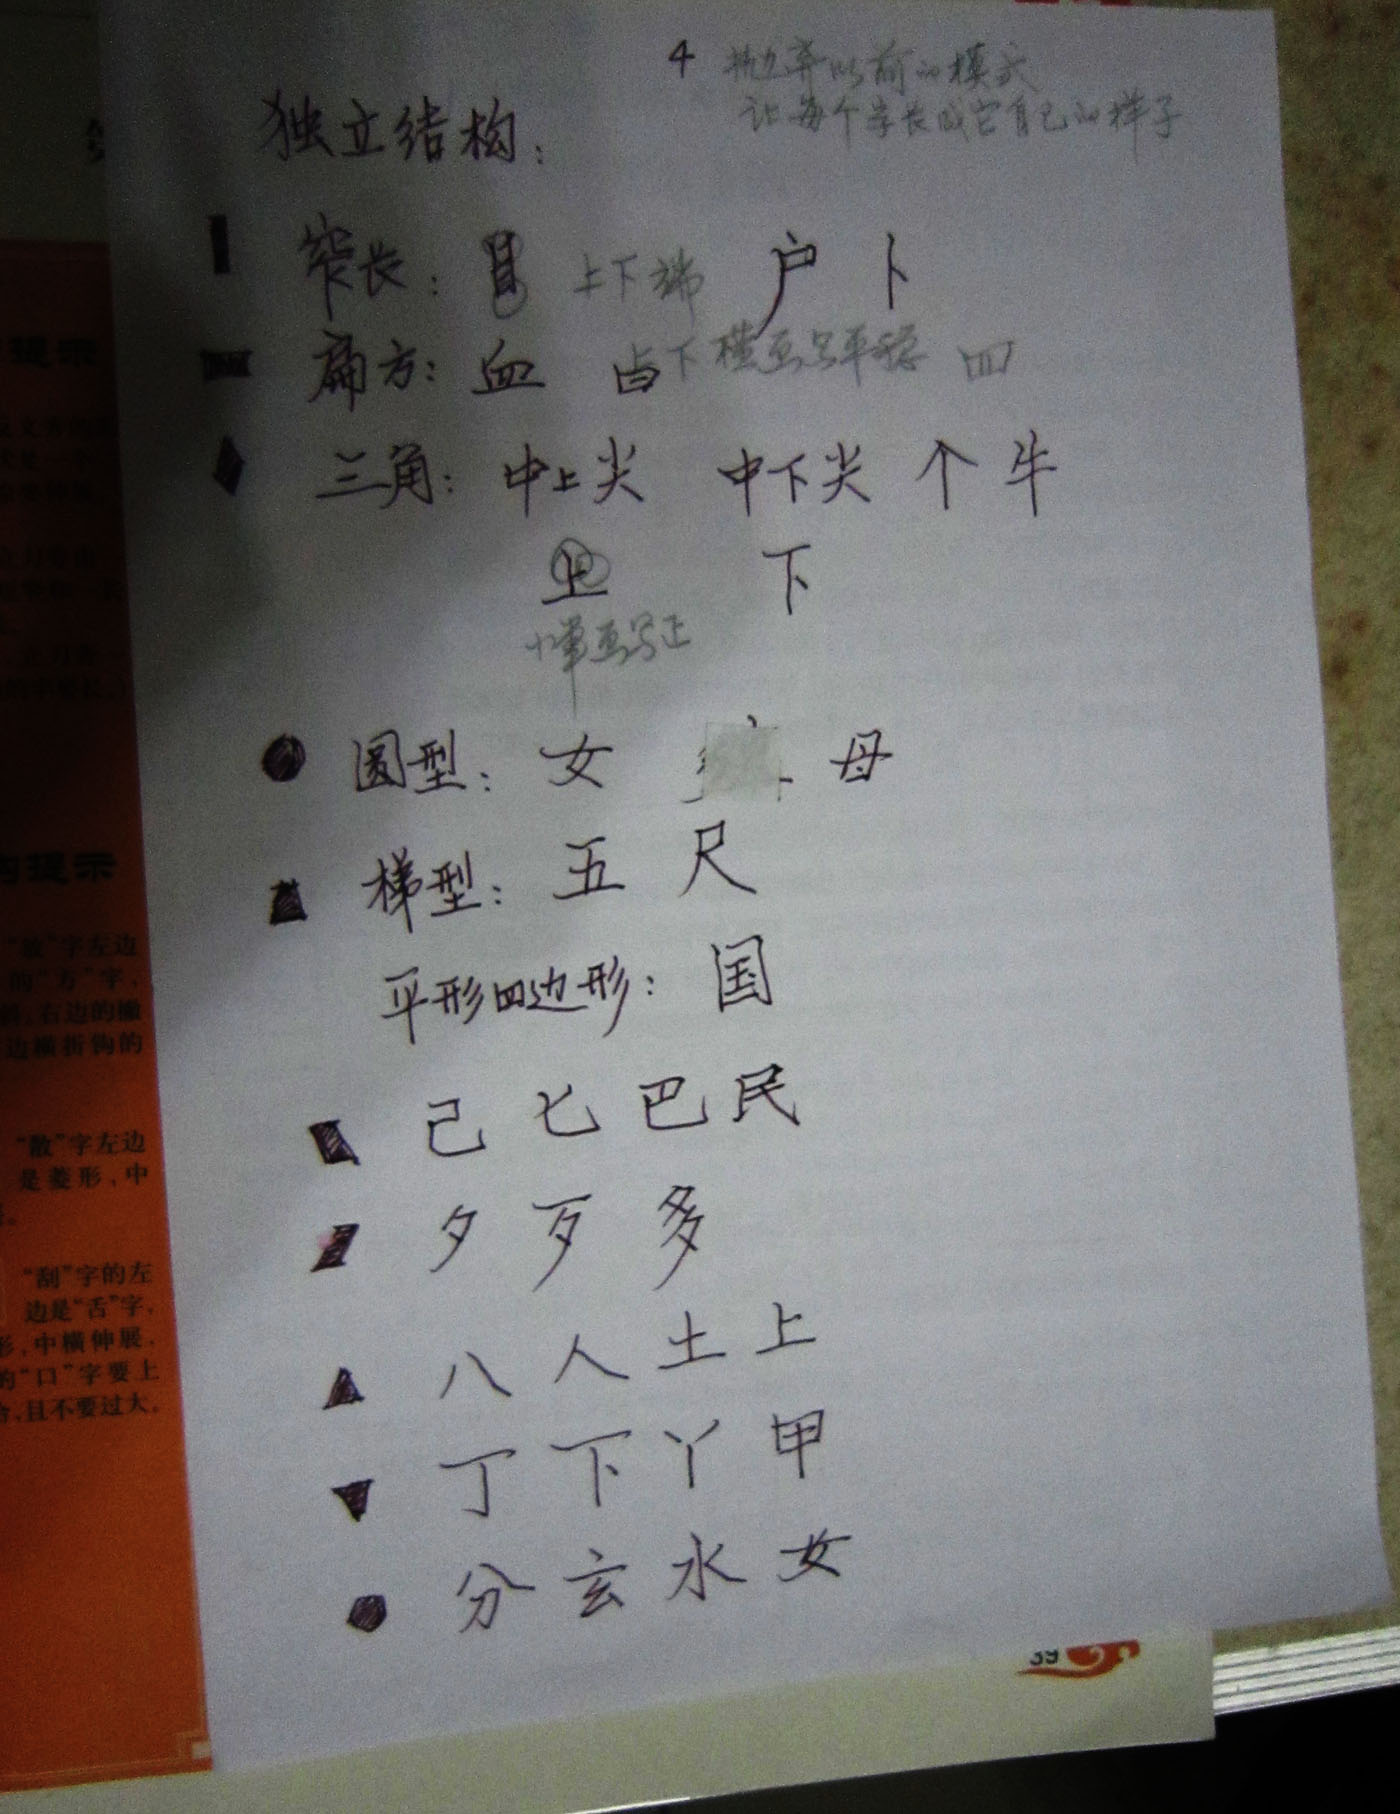 4 抛弃以前的模式
让每个字长成它自己的样子
独立结构：
窄长：目 上下端 户 卜
扁方：血 卤 下横画写平稳 四
三角：中上尖 中下尖 个 牛
上 下
竖画写正
圆型：女 母
梯型：五 尺
平形四边形：国
己 匕 巴 民
夕 歹 多
八 人 土 上
丁 下 丫 甲
分 玄 水 女
39
提示
提示
"敖"字左边
的"方"字，
右边的撇
边横折钩的
"散"字左边
是菱形，中
"刮"字的左
边是"舌"字，
形，中横伸展，
的"口"字要上
，且不要过大。